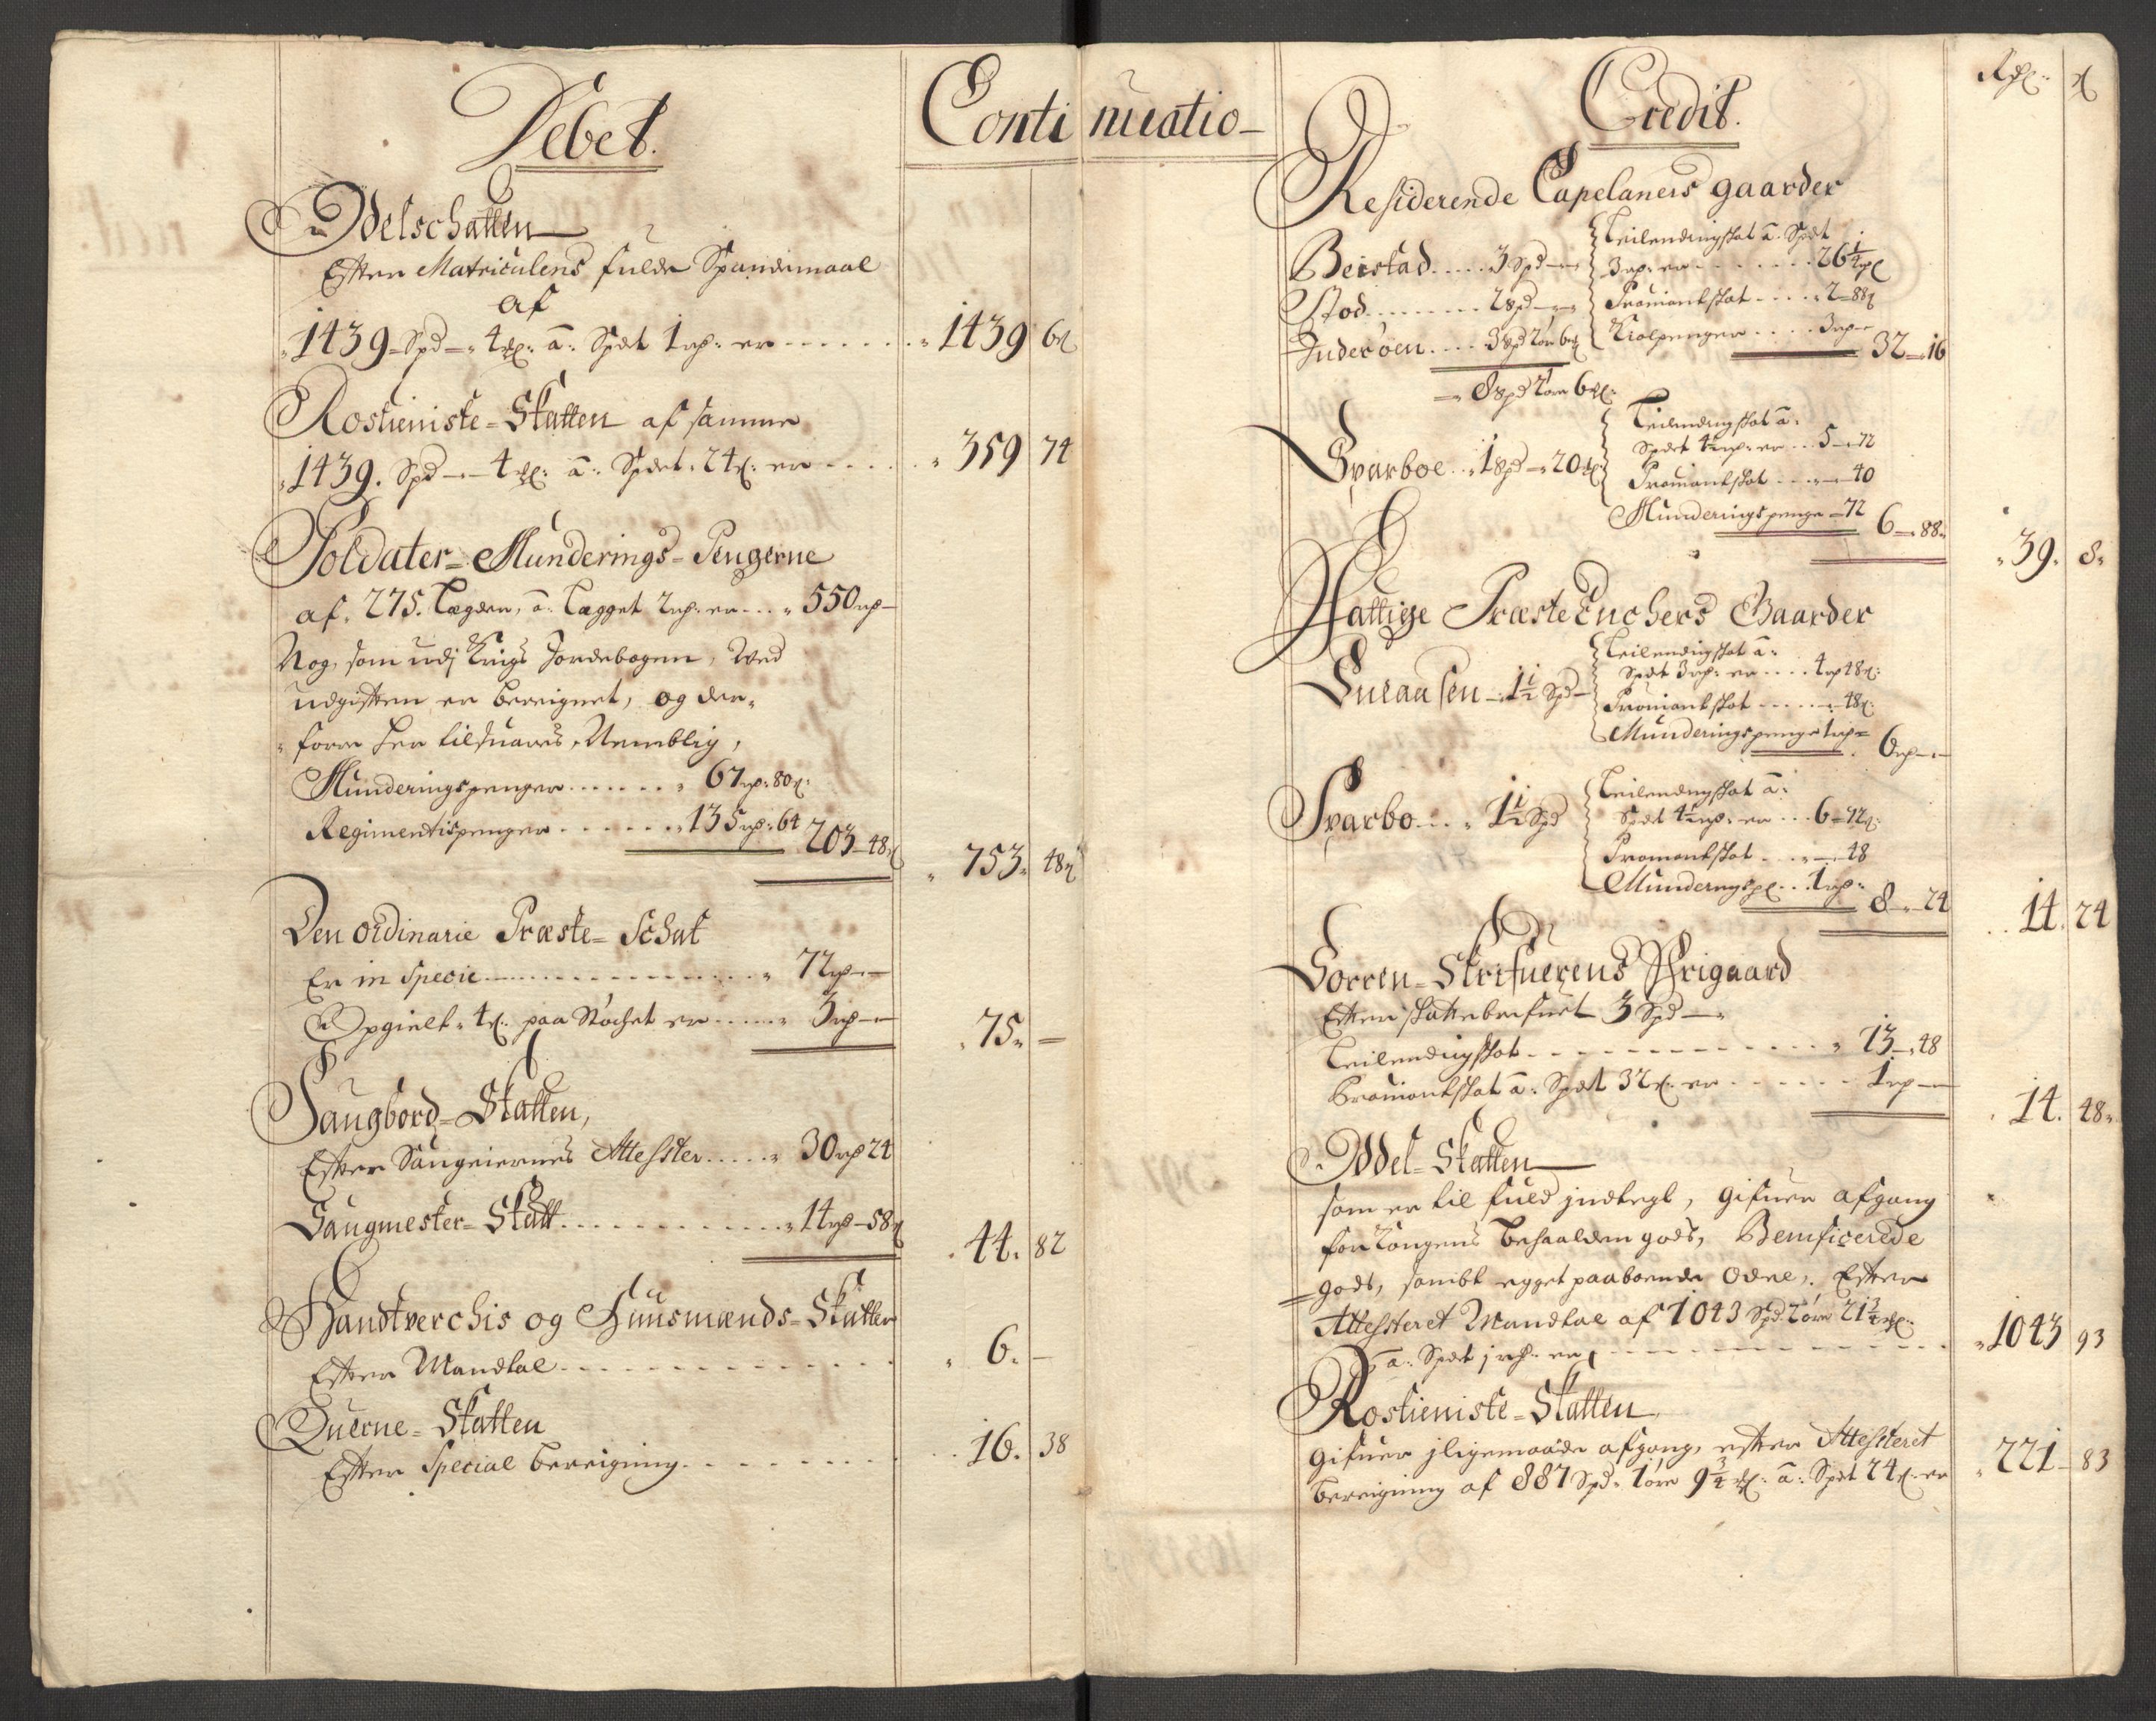 Debet.
Continuatio
Odelschatten
Efter Matriculens fulde Spandemaal
af
1439 Spd - 4 ml: a: Spdt 1 rd: er 1439 6
Rostieniste-Skatten af samme
1439. Spd - 4 ml: a: Spdt. 24 s: er 359 74
Soldater-Munderings-Pengerne
af. 275. Legder, a: Legget 2 rd: er 550 rd
Nog, som udj Krigs Jordebogen, Ved
udgiften er bereignet, og der-
forre her tilsuares, Nemblig,
Munderingspenger 67 rd: 80 s:
Regimentspenger 135 rd: 64 203-48
753. 48
Den ordinarie Præste-Schat
Er in Specie 72 rd
Opgielt. 4 s: paa Støchet er 3 rd
75. -
Saugbord-Skatten,
Efter Saugeiernes Attester 30 rd 24
Saugmester-Skatt 14 rd-58
44. 82
Handtverchis og Huusmænds-Skatter
Efter Mandtal 6. -
Querne-Skatten
Efter Special bereigning 16. 38
Credit.
Rdl: s
Residerende Capelaners gaarder
Beistad 3 Spd
Stod 2 Spd
Inderøen 3 Spd 2 ør 6 ml
8 Spd 2 ør 6 ml:
Leilendingskat a: Spdt
3 rd: er 26 1/4
Proviantskat 2-88
Kiolpenger 3 rd
32-16
Sparboe 1 Spd - 20 ml
Leilendingskat a:
Spdt 4 1/2 rd: er 5-72
Proviantskat 40
Munderingspenge 72
6-88
39. 8
Fattige Præste Enchers Gaarder
Sneaasen 1 1/2 Spd
Leilendingskat a:
Spdt 3 rd: er 4 rd 48 s:
Proviantskat 48 s:
Munderingspenge 1 rd
6 rd
Sparbo 1 1/2 Spd
Leilendingskat a:
Spdt 4 1/2 rd: er 6-72
Proviantskat 48
Munderingspe: 1 rd
8-24
14. 24
Sorren-Skrifuerens Frigaard
Efter skattebrefuet 3 Spd
Leilendingskat 13-48
Proviantskat a: Spdt 32 s: er 1 rd
14. 48
Odel-Skatten
som er til fuld indtegt, gifuer afgang
for Kongens beholden gods, Benificerede
gods, sambt egget paaboende Odel, Efter
Attesteret Mandtal af 1043 Spd 2 øre 21 3/4 ml:
a: Spdt 1 rd: er 1043 93
Rostieniste-Skatten
gifuer iligemaade afgang, efter Attesteret
bereigning af 887 Spd. 1 øre 9 3/4 ml: a: Spdt 24 s: er 221 83